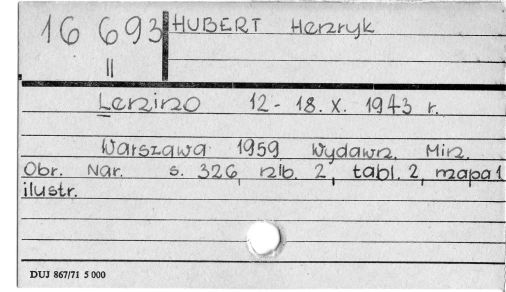 16 693 HUBERT Henryk
II
Lenino 12-18. X. 1943 r.
Warszawa 1959 Wydawn. Min.
Obr. Nar. s. 326, nlb. 2, tabl. 2, mapa 1
ilustr.
DUJ 867/71 5 000